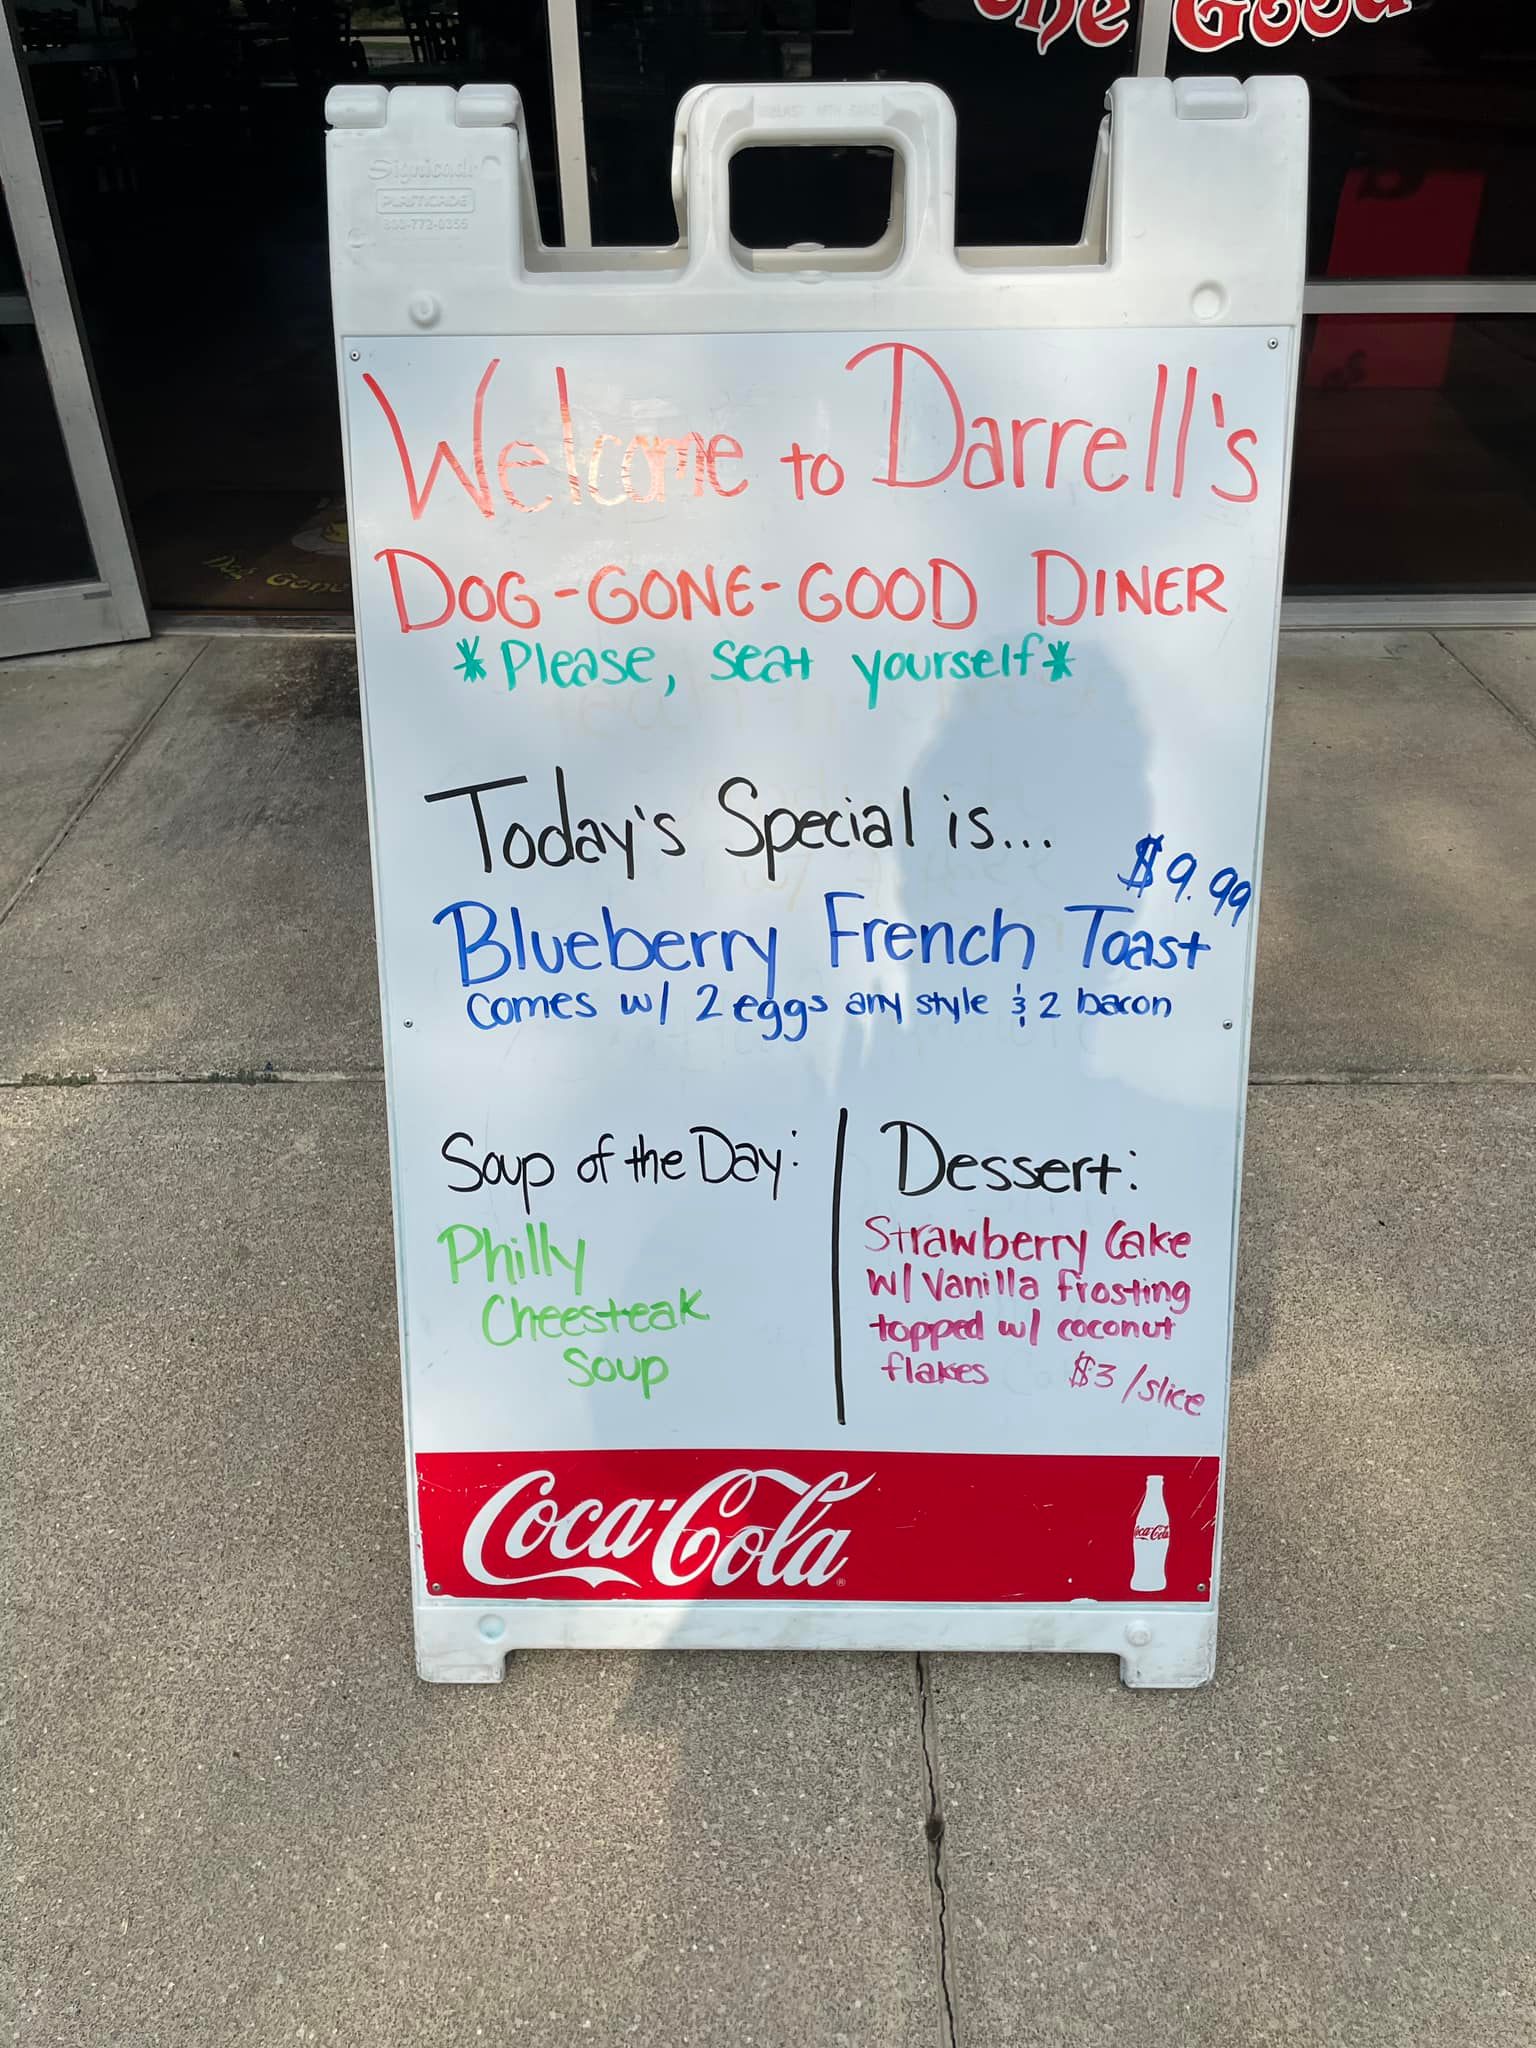 The Good
Signicade
PLASTICADE
800-772-0355
Dog Gone
Welcome to Darrell's
DOG-GONE-GOOD DINER
*Please, seat yourself*
Today's Special is...
$9.99
Blueberry French Toast
comes w/ 2 eggs any style & 2 bacon
Soup of the Day:
Philly
Cheesteak
Soup
Dessert:
Strawberry Cake
w/ Vanilla frosting
topped w/ coconut
flakes $3/slice
Coca-Cola
Coca-Cola